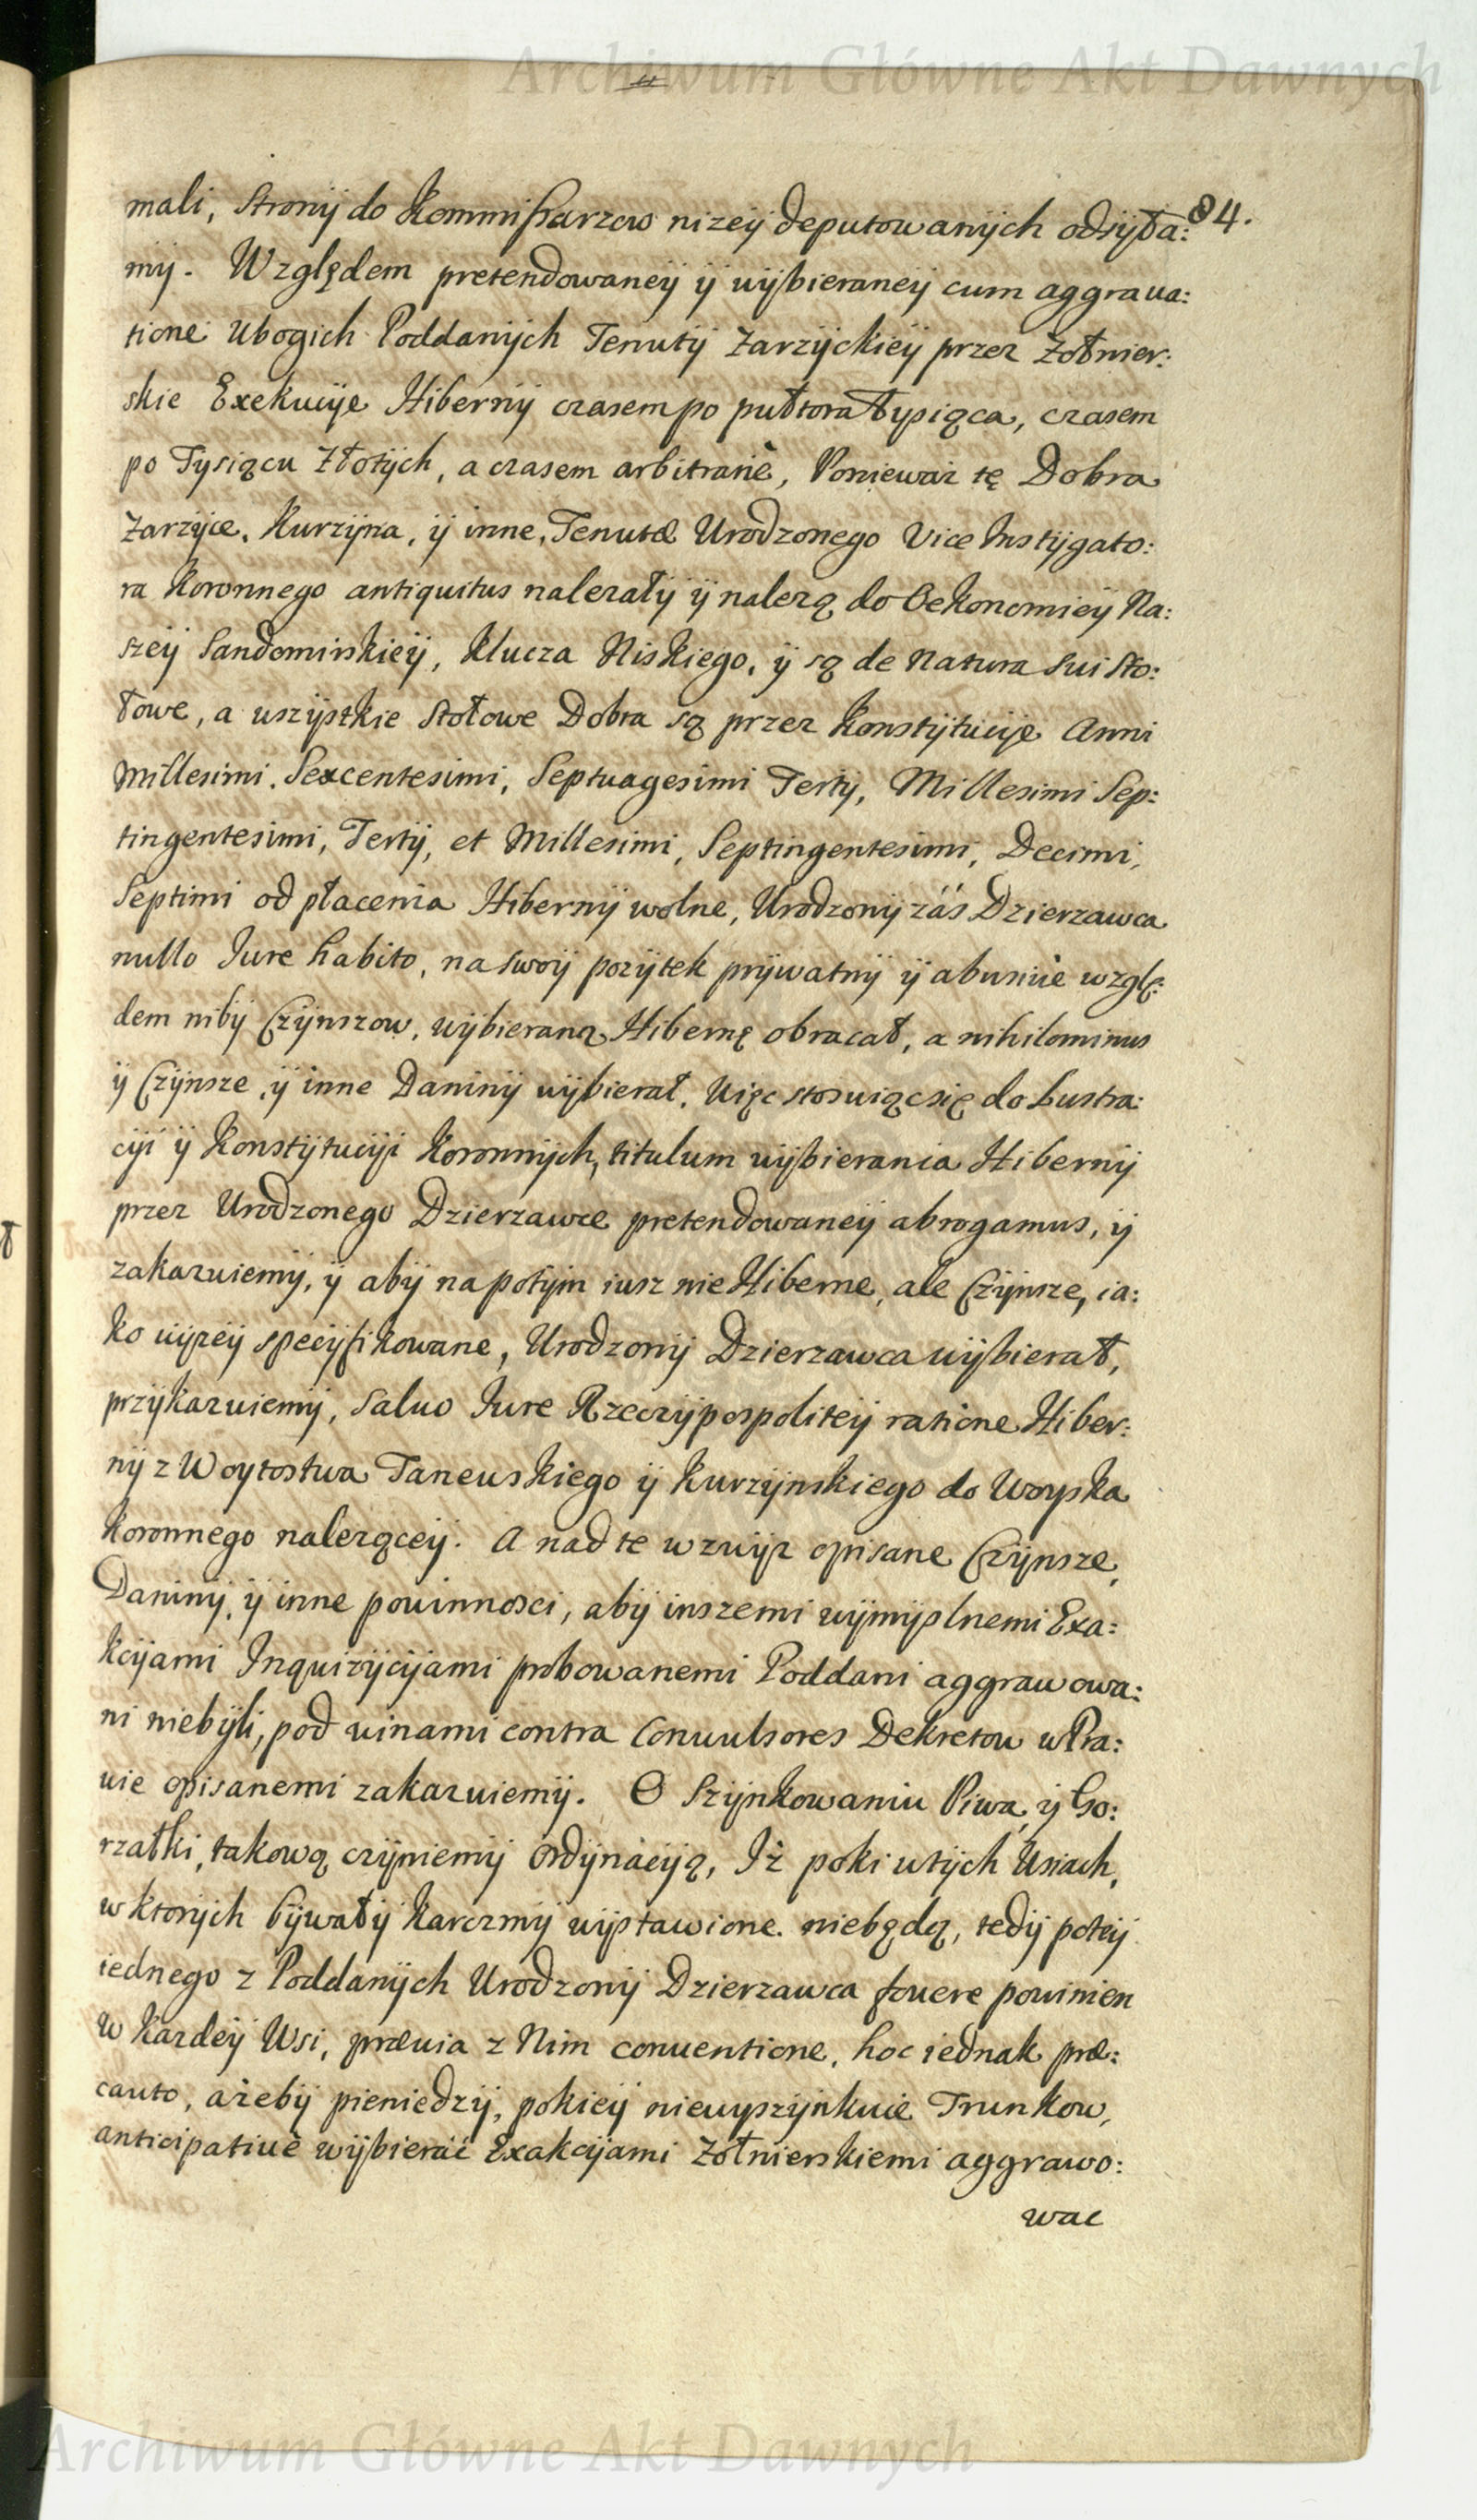 Archiwum Główne Akt Dawnych
84.
mali, Stronÿ do Kommißarzow nizeÿ deputowanÿch odsÿła:
mÿ. Względem pretendowaneÿ ÿ wÿbieraneÿ cum aggraua:
tione Ubogich Poddanÿch Tenutÿ Zarzÿckieÿ przez Żołnier:
skie Exekucÿe Hibernÿ czasem po pułtora Tysiąca, czasem
po Tysiącu Złotÿch, a czasem arbitrariè, Ponieważ tę Dobra
Zarzÿce, Kurzÿna, ÿ inne, Tenutæ Urodzonego Vice Instÿgato:
ra Koronnego antiquitus nalezałÿ ÿ nalezą do Oekonomieÿ Na:
szeÿ Sandomirskieÿ, Klucza Niskiego, ÿ są de Natura Sui Sto:
łowe, a wszÿstkie Stołowe Dobra są przez Konstÿtucÿe Anni
Millesimi, Sexcentesimi, Septuagesimi Tertÿ, Millesimi Sep:
tingentesimi, Tertÿ, et Millesimi, Septingentesimi, Decimi,
Septimi od płacenia Hibernÿ wolne, Urodzonÿ záś Dzierzawca
nullo Jure habito, na swoÿ pozÿtek prÿwatnÿ ÿ abusiuè wzglę:
dem nibÿ Czÿnszow, wÿbieraną Hibernę obracał, a nihilominus
ÿ Czÿnsze, ÿ inne Daninÿ wÿbierał, Więc stosuiąc się do Lustra:
cÿi ÿ Konstÿtucÿi Koronnÿch, titulum wÿbierania Hibernÿ
przez Urodzonego Dzierzawcę pretendowaneÿ abrogamus, ÿ
zakazuiemÿ, ÿ abÿ na potÿm iusz nie Hiberne, ale Czÿnsze, ia:
ko wÿzeÿ specÿfikowane, Urodzonÿ Dzierzawca wÿbierał,
przÿkazuiemÿ, Saluo Jure Rzeczÿpospoliteÿ ratione Hiber:
nÿ z Woytostwa Taneuskiego ÿ Kurzÿnskiego do Woyska
Koronnego nalezącéÿ. A nad te wzwÿz opisane Czÿnsze,
Daninÿ, ÿ inne powinnosci, abÿ inszemi wÿmÿslnemi Exa:
kcÿami Inquizÿcÿami probowanemi Poddani aggrawowa:
ni niebÿli, pod winami contra Conuulsores Dekretow w Pra:
wie opisanemi zakazuiemÿ. O Szÿnkowaniu Piwa, ÿ Go:
rzałki, takową czÿniemÿ Ordÿnacÿą, Iż poki w tÿch Wsiach,
w ktorÿch bÿwałÿ Karczmÿ wÿstawione niebędą, tedÿ poteÿ
iednego z Poddanÿch Urodzonÿ Dzierzawca fouere powinien
w Kazdeÿ Wsi, præuia z Nim conuentione, hoc iednak præ:
cauto, ażebÿ pieniedzÿ, pokieÿ niewyszÿnkuie Trunkow,
anticipatiuè wÿbierać Exakcÿami Żołnierskiemi aggrawo:
wac
Archiwum Główne Akt Dawnych